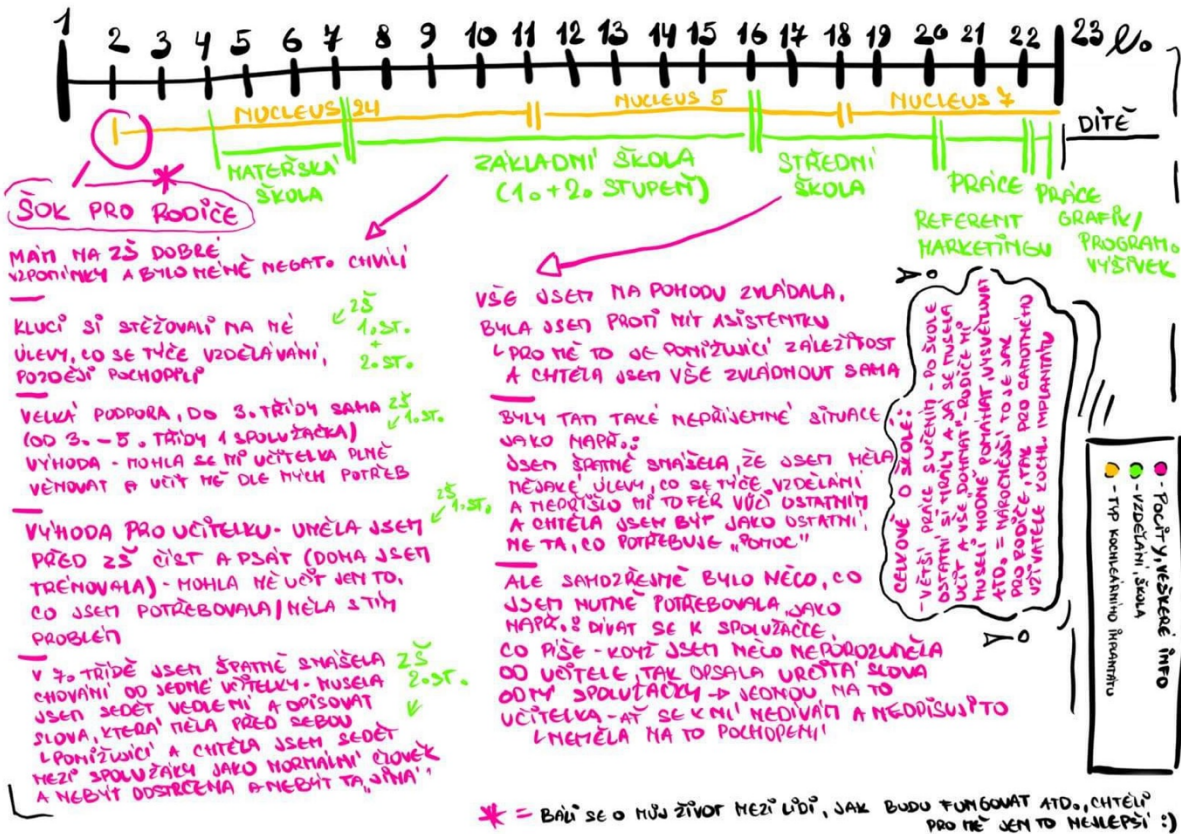 1 2 3 4 5 6 7 8 9 10 11 12 13 14 15 16 17 18 19 20 21 22 23 l.
NUCLEUS 24
NUCLEUS 5
NUCLEUS 7
DÍTĚ
MATEŘSKÁ
ŠKOLA
ZÁKLADNÍ ŠKOLA
(1.+2. STUPEŇ)
STŘEDNÍ
ŠKOLA
PRÁCE
REFERENT
MARKETINGU
PRÁCE
GRAFIK/
PROGRAM.
VÝŠIVEK
ŠOK PRO RODIČE
MÁM NA ZŠ DOBRÉ
VZPOMÍNKY A BYLO MÉNĚ NEGAT. CHVÍLÍ
KLUCI SI STĚŽOVALI NA MÉ
ÚLEVY, CO SE TÝČE VZDĚLÁVÁNÍ,
POZDĚJI POCHOPILI
ZŠ
1.ST.
+
2.ST.
VELKÁ PODPORA, DO 3. TŘÍDY SAMA
(OD 3. - 5. TŘÍDY 1 SPOLUŽAČKA)
VÝHODA - MOHLA SE MI UČITELKA PLNĚ
VĚNOVAT A UČIT MĚ DLE MÝCH POTŘEB
ZŠ
1.ST.
VÝHODA PRO UČITELKU - UMĚLA JSEM
PŘED ZŠ ČÍST A PSÁT (DOMA JSEM
TRÉNOVALA) - MOHLA MĚ UČIT JEN TO,
CO JSEM POTŘEBOVALA/MĚLA S TÍM
PROBLÉM
ZŠ
1.ST.
V 7. TŘÍDĚ JSEM ŠPATNĚ SNÁŠELA
CHOVÁNÍ OD JEDNÉ UČITELKY - MUSELA
JSEM SEDĚT VEDLE NÍ A OPISOVAT
SLOVA, KTERÁ MĚLA PŘED SEBOU
PONIŽUJÍCÍ A CHTĚLA JSEM SEDĚT
MEZI SPOLUŽÁKY JAKO NORMÁLNÍ ČLOVĚK
A NEBÝT ODSTRČENA A NEBÝT TA „JINÁ"
ZŠ
2.ST.
VŠE JSEM NA POHODU ZVLÁDALA,
BYLA JSEM PROTI MÍT ASISTENTKU
PRO MĚ TO JE PONIŽUJÍCÍ ZÁLEŽITOST
A CHTĚLA JSEM VŠE ZVLÁDNOUT SAMA
BYLY TAM TAKÉ NEPŘÍJEMNÉ SITUACE
JAKO NAPŘ.:
JSEM ŠPATNĚ SNÁŠELA, ŽE JSEM MĚLA
NĚJAKÉ ÚLEVY, CO SE TÝČE VZDĚLÁNÍ
A NEPŘIŠLO MI TO FÉR VŮČI OSTATNÍM
A CHTĚLA JSEM BÝT JAKO OSTATNÍ,
NE TA, CO POTŘEBUJE „POMOC"
ALE SAMOZŘEJMĚ BYLO NĚCO, CO
JSEM NUTNĚ POTŘEBOVALA, JAKO
NAPŘ.: DÍVAT SE K SPOLUŽAČCE,
CO PÍŠE - KDYŽ JSEM NĚCO NEPOROZUMĚLA
OD UČITELE, TAK OPSALA URČITÁ SLOVA
OD MÝ SPOLUŽAČKY → JEDNOU NA TO
UČITELKA - AŤ SE K NÍ NEDÍVÁM A NEOPISUJI TO
NEMĚLA NA TO POCHOPENÍ
CELKOVĚ O ŠKOLE:
- VĚTŠÍ PRÁCE S UČENÍM - PO ŠKOLE
OSTATNÍ SI HRÁLY A JÁ SE MUSELA
UČIT A VŠE „DOHNAT" - RODIČE MI
MUSELI HODNĚ POMÁHAT, VYSVĚTLOVAT
ATD. = NÁROČNĚJŠÍ TO JE JAK
PRO RODIČE, TAK PRO SAMOTNÉHO
UŽIVATELE KOCHL. IMPLANTÁTU
- POCITY, VEŠKERÉ INFO
- VZDĚLÁNÍ, ŠKOLA
- TYP KOCHLEÁRNÍHO IMPLANTÁTU
* = BÁLI SE O MŮJ ŽIVOT MEZI LIDI, JAK BUDU FUNGOVAT ATD., CHTĚLI
PRO MĚ JEN TO NEJLEPŠÍ :)